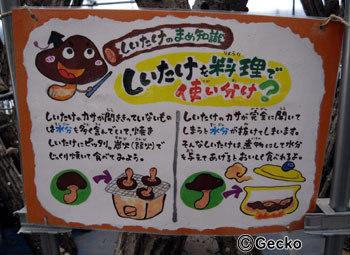 しいたけのまめ知識
しいたけを料理で
使い分け?
しいたけのカサが開ききっていないもの
は水分を多く含んでいて、焼き
しいたけにピッタリ。炭火（弱火）で
じっくり焼いて食べてみよう。
しいたけのカサが完全に開いて
しまうと水分が抜けてしまいます。
そんなしいたけは、煮物にして水分
を与えてあげるとおいしく食べれるよ。
© Gecko